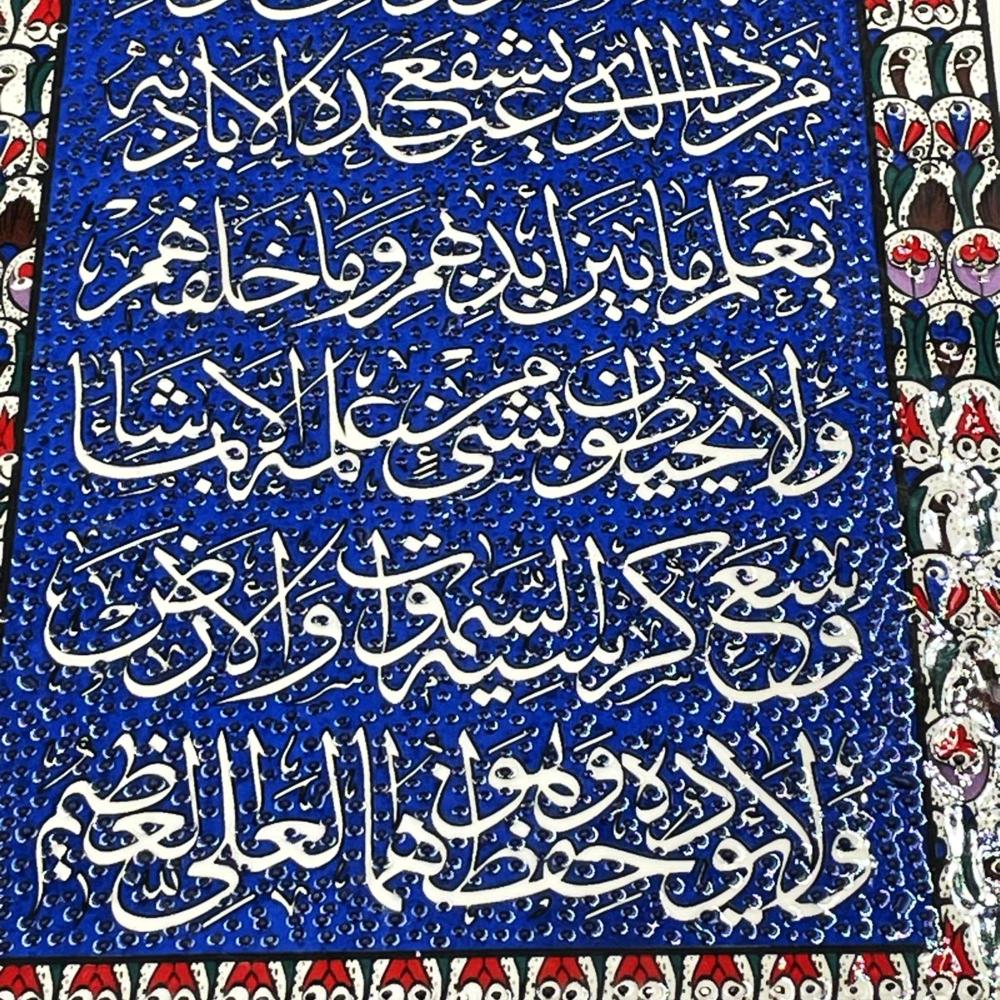 من ذا الذي يشفع عنده الا باذنه
يعلم ما بين ايديهم وما خلفهم
ولا يحيطون بشئ من علمه الا بما شاء
وسع كرسيه السموات والارض
ولا يؤده حفظهما وهو العلي العظيم